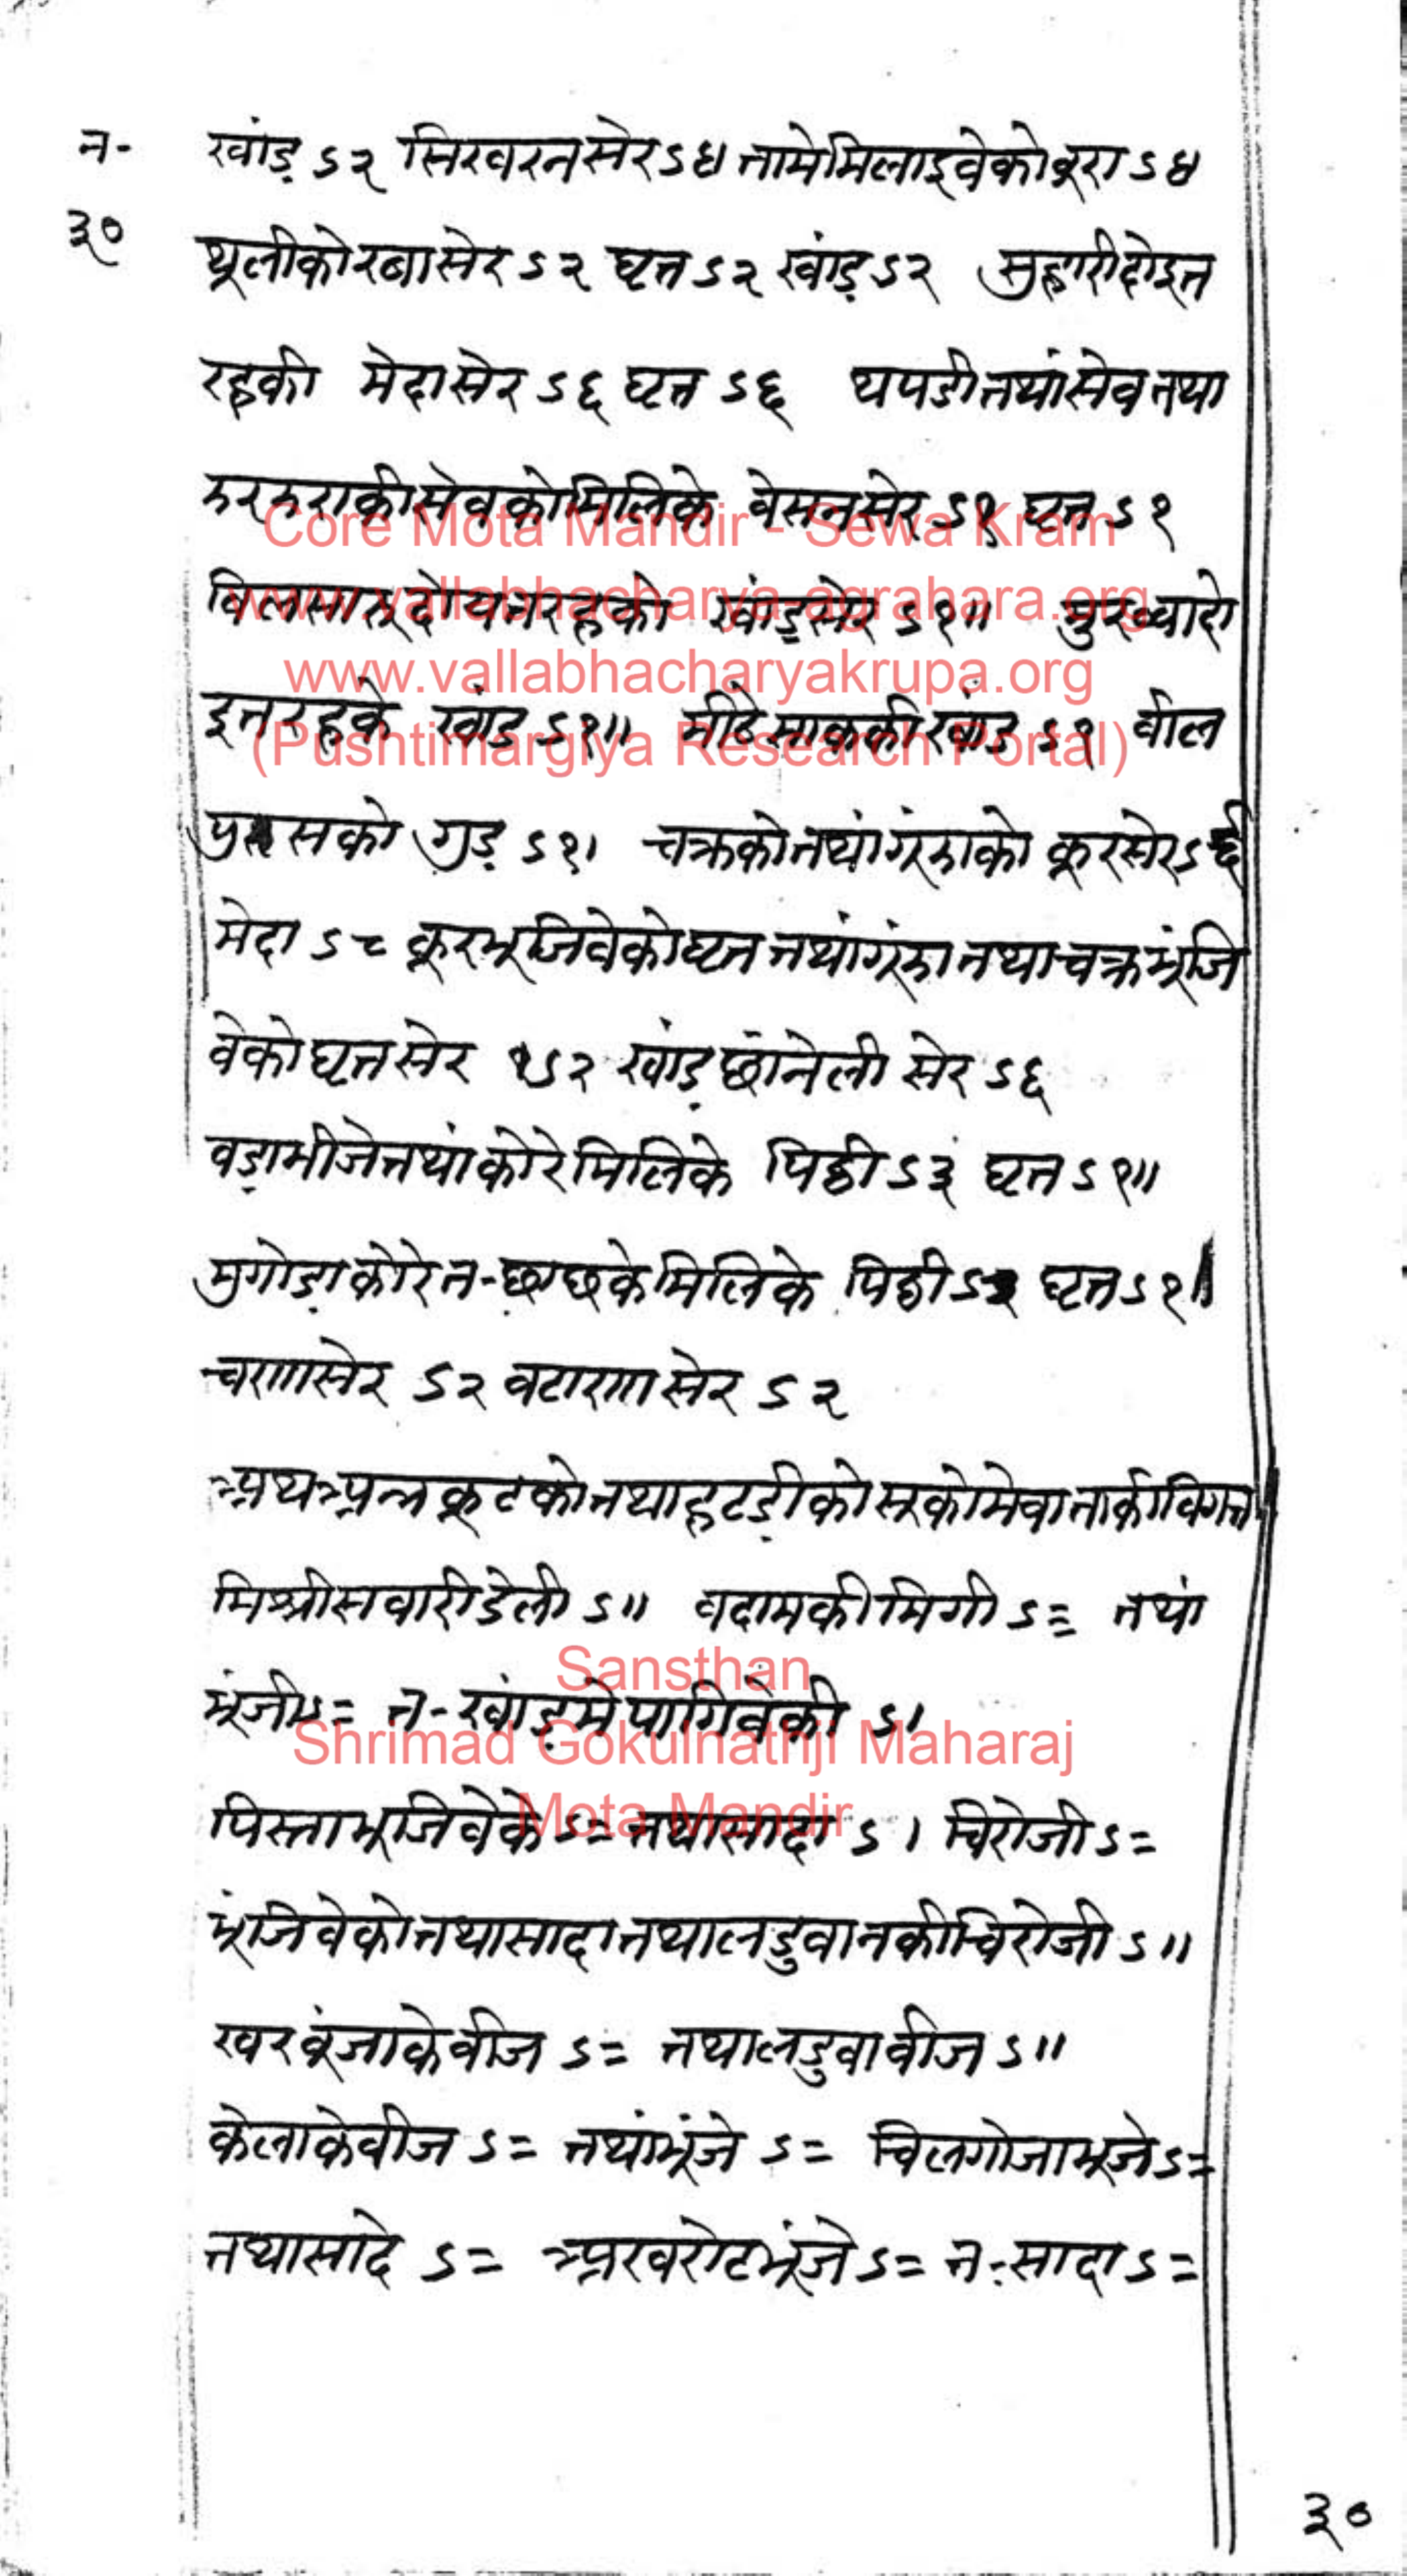 न-
३०
खांड़ ऽ२ सिखरन सेर ऽ४ तामे मिलाइवे को बूरा ऽ४
थूली को रवा सेर ऽ२ घृत ऽ२ खांड़ ऽ२ सुहारी दोइ त
रह की मेदा सेर ऽ६ घृत ऽ६ थपडी तथां सेव तथा
झरझरा की सेव को मिलिके वेसन सेर ऽ१ घृत ऽ१
विलसारू दोय तरह को खांड़ सेर ऽ१॥ मुरब्बा दो
इ तरह के खांड ऽ१॥ मीठे साक की खांड ऽ१ वील
को गुड़ ऽ१। चक्र को तथां गूंझा को कूर सेर ऽ६
मेदा ऽ८ कूर भूजिवे को घृत तथां गूंझा तथा चक्र भूंजि
वे को घृत सेर ऽ२ खांड़ छांनेली सेर ऽ६
वड़ा भीजे तथां कोरे मिलिके पिठी ऽ३ घृत ऽ१॥
मुगोड़ा कोरे त- छाछ के मिलिके पिठी घृत ऽ१॥
चणा सेर ऽ२ वटाणा सेर ऽ२
अथ अन्नकूट को तथा हटड़ी को सूको मेवा ताकी विगत
मिश्री सवारी डेली ऽ॥ वदाम की मिगी ऽ= तथां
भूंजी ऽ= त- खांड़ मे पागिवे की ऽ।
पिस्ता भूजिवे के ऽ= तथा सादा ऽ। चिरोजी ऽ=
भूंजिवे को तथा सादा तथा लडुवान की चिरोजी ऽ॥
खरबूंजा के वीज ऽ= तथा लडुवा वीज ऽ॥
केला के वीज ऽ= तथां भूंजे ऽ= चिलगोजा भूजे ऽ=
तथा सादे ऽ= अखरोट भूंजे ऽ= त- सादा ऽ=
३०
Core Mota Mandir - Sewa Kram
www.vallabhacharya-agrahara.org
www.vallabhacharyakrupa.org
(Pushtimargiya Research Portal)
Sansthan
Shrimad Gokulnathji Maharaj
Mota Mandir